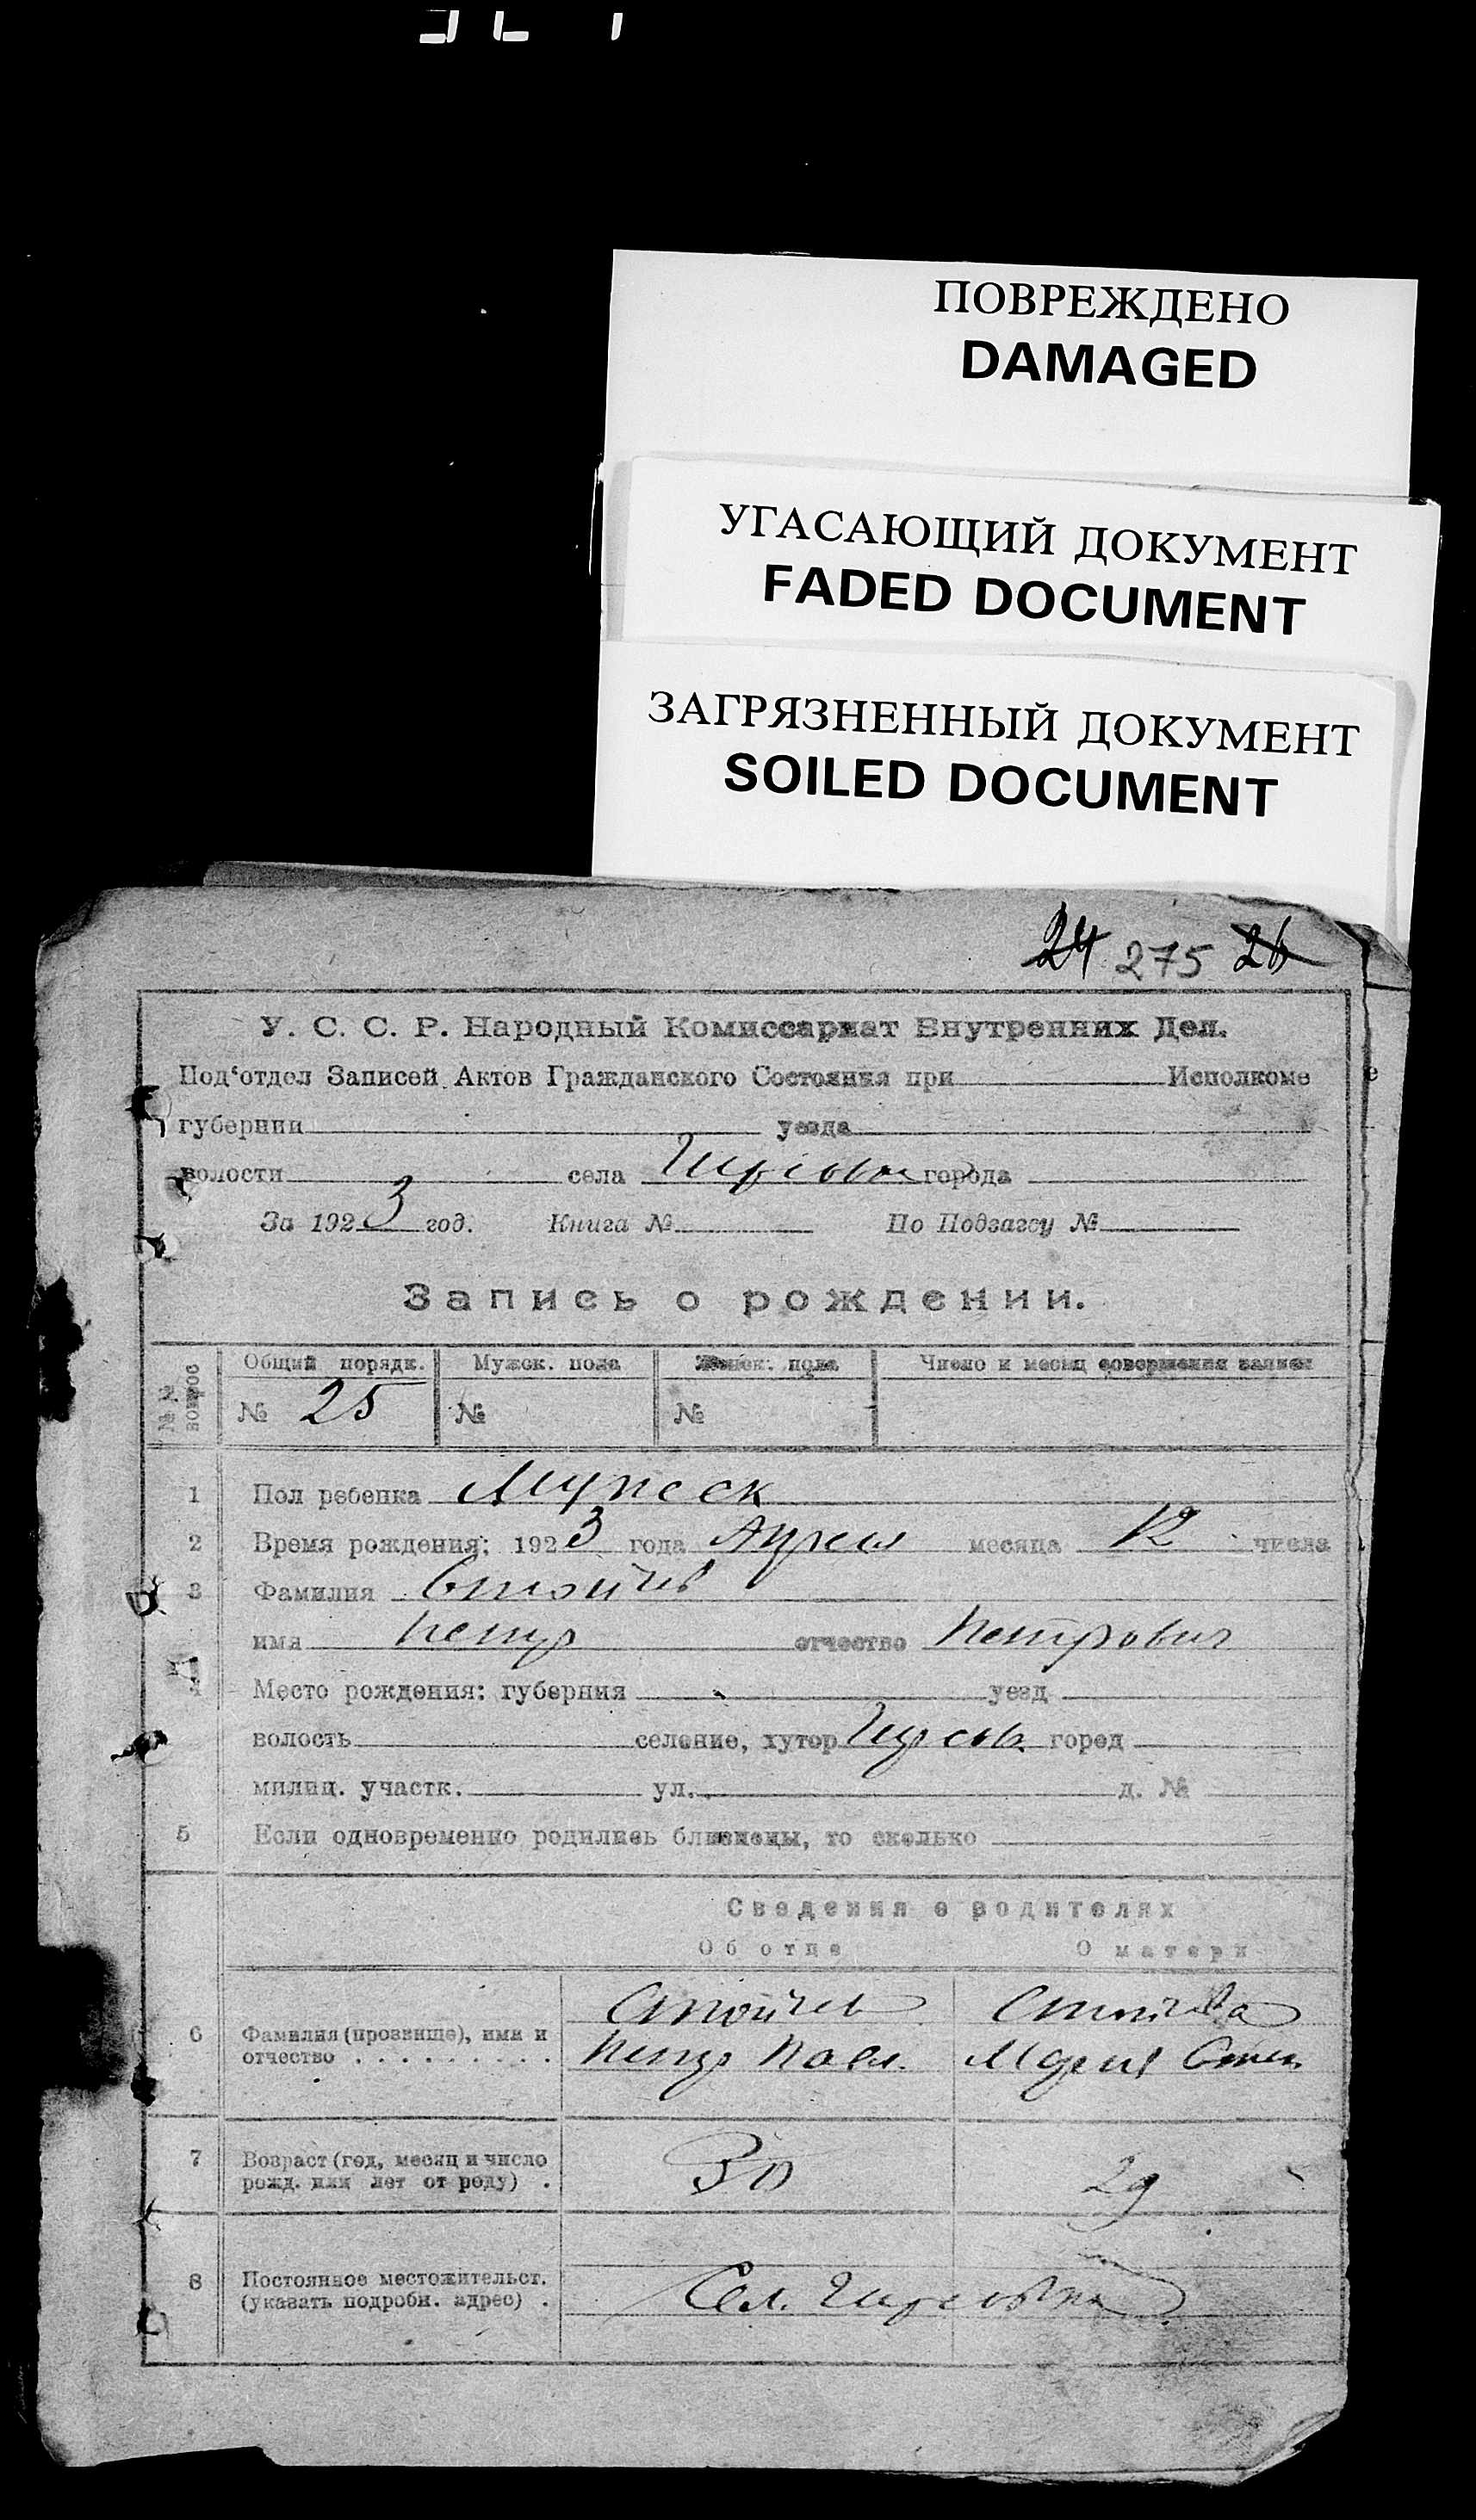 ПОВРЕЖДЕНО
DAMAGED
УГАСАЮЩИЙ ДОКУМЕНТ
FADED DOCUMENT
ЗАГРЯЗНЕННЫЙ ДОКУМЕНТ
SOILED DOCUMENT
24 275 26
У. С. С. Р. Народный Комиссариат Внутренних Дел.
Под'отдел Записей Актов Гражданского Состояния при Исполкоме
губернии уезда
волости села города
За 1923 год. Книга № По Подзагсу №
Запись о рождении.
№№ вопрос Общий порядк. Мужск. пола Женск. пола Число и месяц совершения записи
№ 25 № №
1 Пол ребенка Мужеск
2 Время рождения: 1923 года Апреля месяца 12 числа
3 Фамилия Стойчев
имя Петр отчество Петрович
4 Место рождения: губерния уезд
волость селение, хутор город
милиц. участк. ул. д. №
5 Если одновременно родились близнецы, то сколько
Сведения о родителях
Об отце О матери
6 Фамилия (прозвище), имя и отчество Стойчев Стойчева
Петр Павл. Мария Степ.
7 Возраст (год, месяц и число рожд. или лет от роду) . 30 29
8 Постоянное местожительст. (указать подробн. адрес) . Сел.